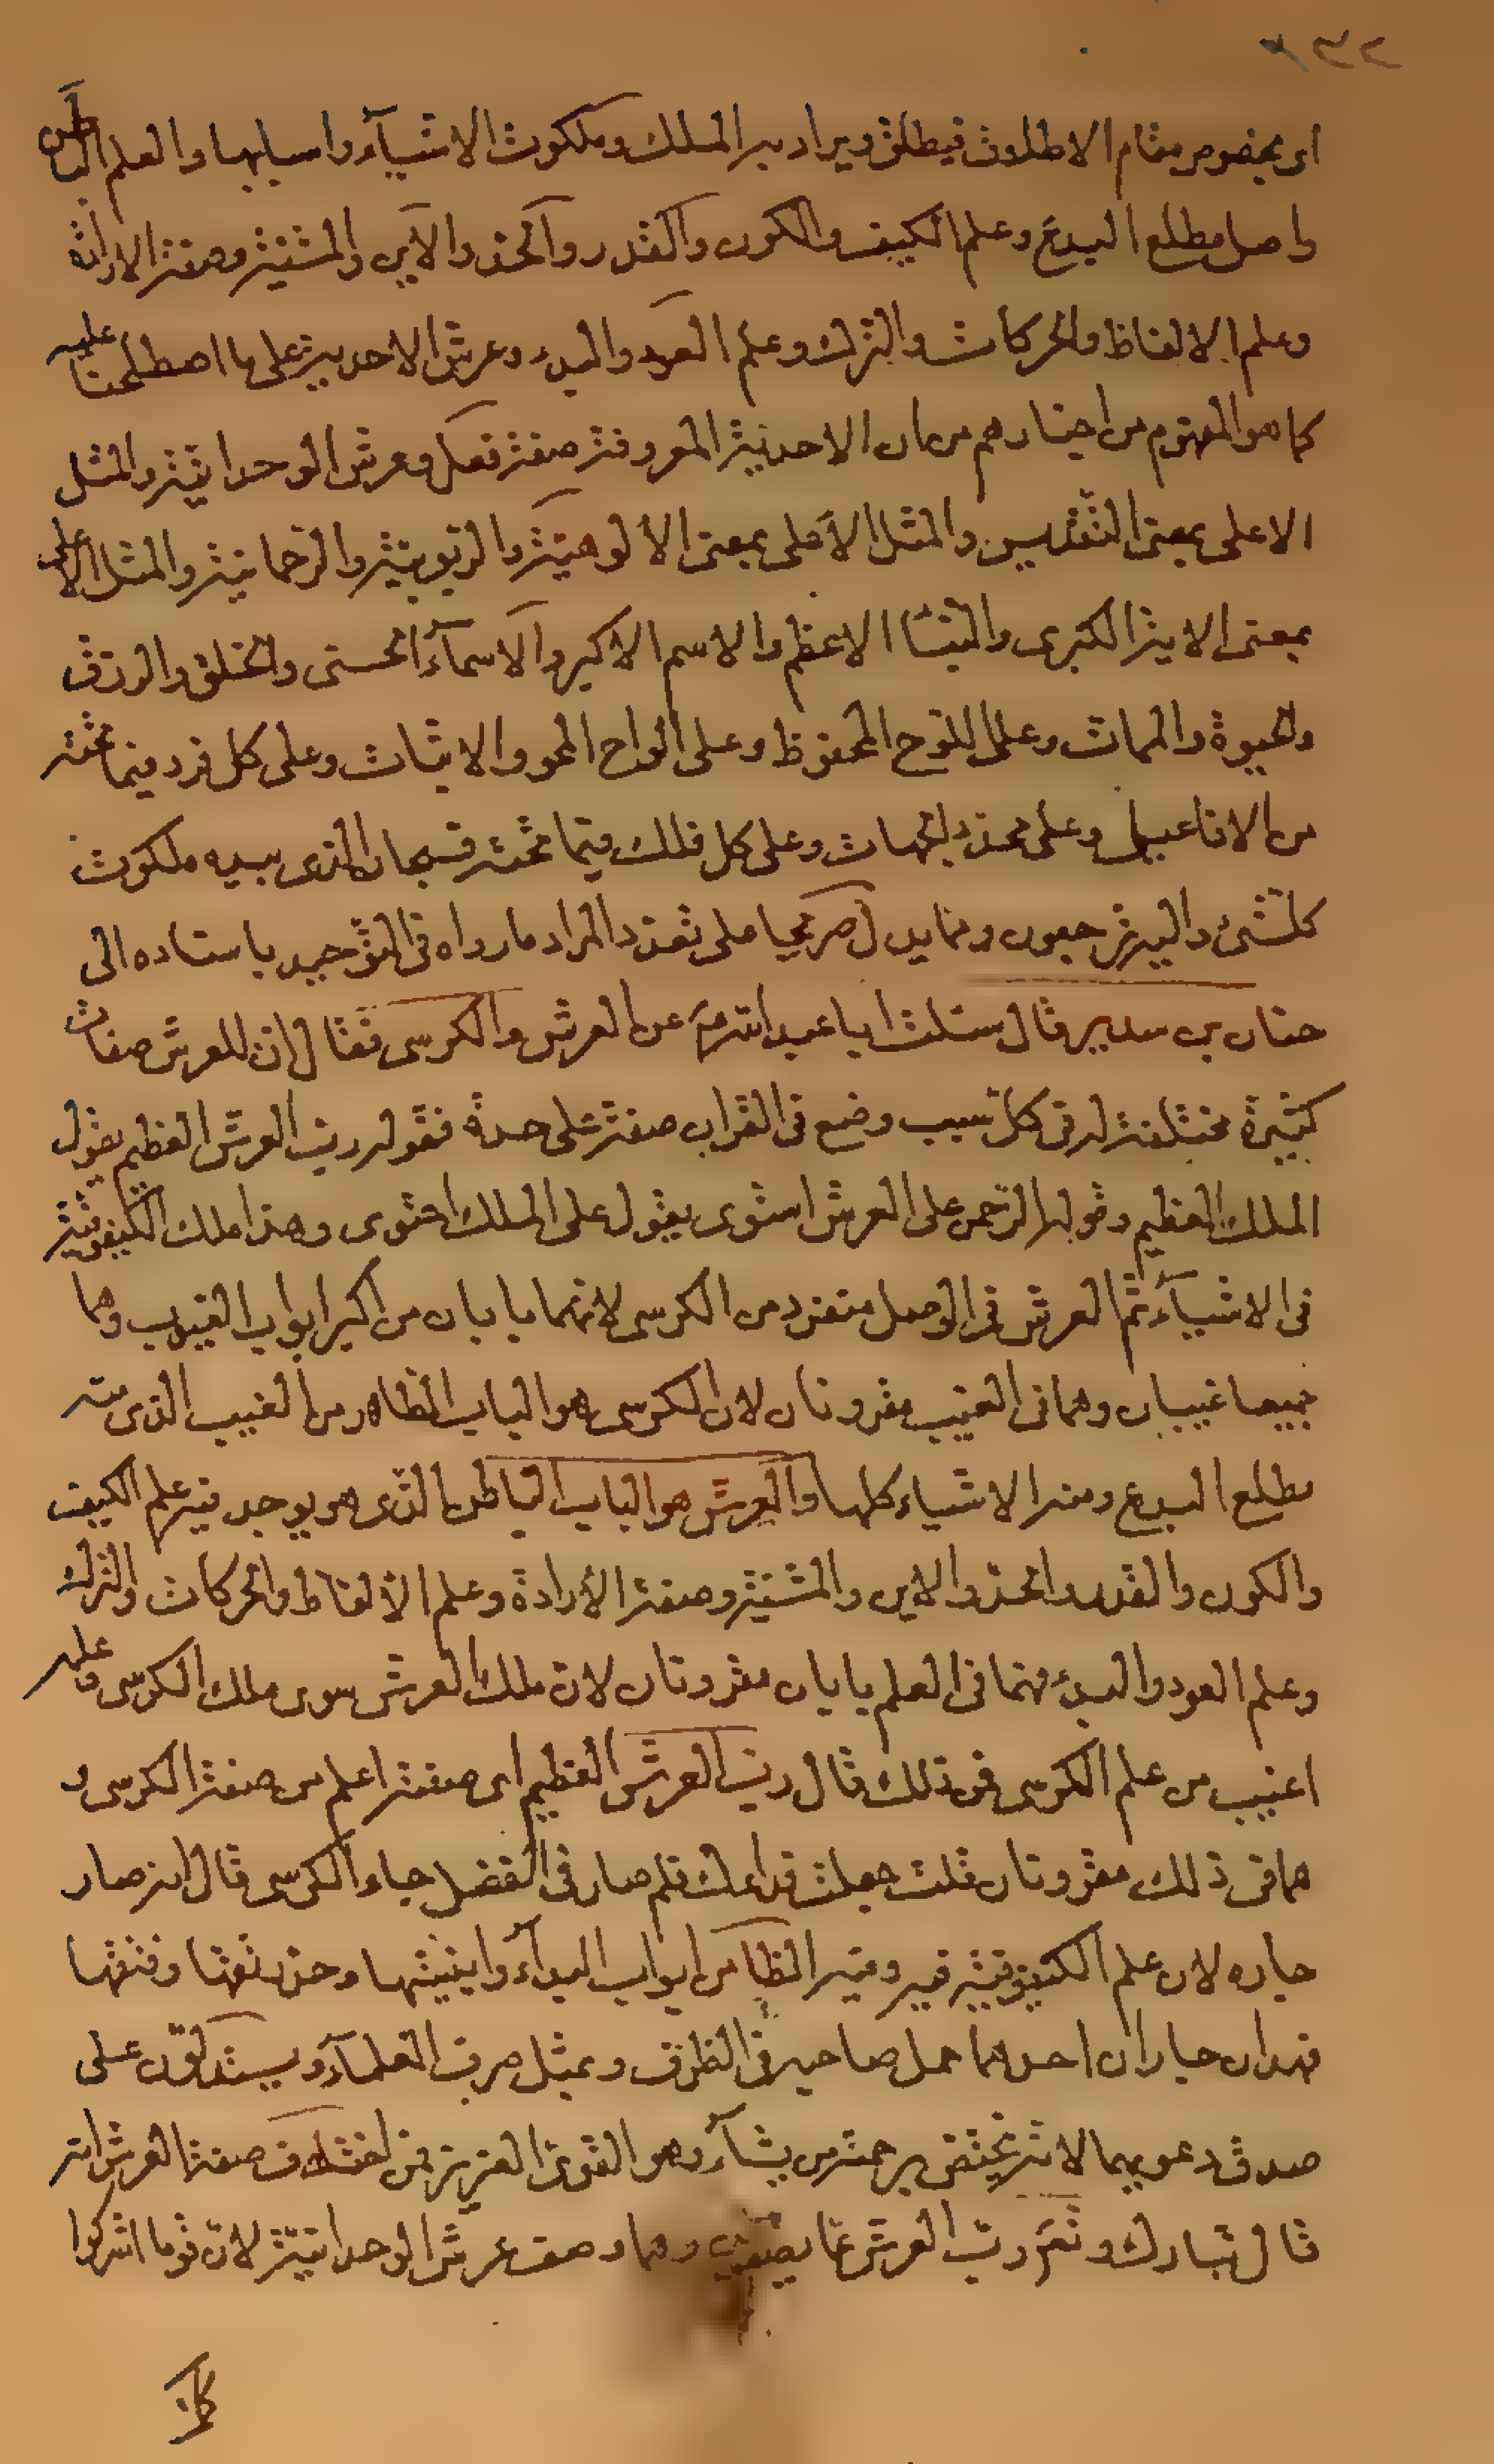 اى بخصوص مقام الاطلاق فيطلق ويراد به الملك وملكوت الاشيآء واسبابها والعلم الباطن
واصل مطلع البدع وعلم الكيف والكون والقدر والحد والأين والمشية وصفة الارادة
وعلم الالفاظ والحركات والترك وعلم العود والبدء وعرش الاحدية على ما اصطلحنا عليه
كما هو المفهوم من اخبارهم من ان الاحدية المعروفة صفة فعل وعرش الوحدانية والمثل
الاعلى بمعنى التقديس والمثل الأعلى بمعنى الألوهية والربوبية والرحمانية والمثل الاعلى
بمعنى الاية الكبرى والنبأ الاعظم والاسم الاكبر والاسمآء الحسنى والخلق والرزق
والحيوة والممات وعلى اللوح المحفوظ وعلى الواح المحو والاثبات وعلى كل فرد فيما تحته
من الافاعيل وعلى محدد الجهات وعلى كل فلك فيما تحته فسبحان الذى بيده ملكوت
كلشئ واليه ترجعون ومما يدل صريحا على تعدد المراد ما رواه فى التوحيد باسناده الى
حنان بن سدير قال سئلت ابا عبد الله ع عن العرش والكرسى فقال ان للعرش صفات
كثيرة مختلفة له فى كل سبب وضع فى القران صفة على حدة فقوله رب العرش العظيم يقول
الملك العظيم وقوله الرحمن على العرش استوى يقول على الملك احتوى وهذا ملك الكيفوفية
فى الاشيآء ثم العرش فى الوصل متفرد من الكرسى لانهما بابان من اكبر ابواب الغيوب وهما
جميعا غيبان وهما فى الغيب مقرونان لان الكرسى هو الباب الظاهر من الغيب الذى منه
مطلع البدع ومنه الاشياء كلها والعرش هو الباب الباطن الذى هو يوجد فيه علم الكيف
والكون والقدر والحد والاين والمشية وصفة الأرادة وعلم الالفاظ والحركات والترك
وعلم العود والبدء فهما فى العلم بابان مقرونان لان ملك العرش سوى ملك الكرسى وعلمه
اغيب من علم الكرسى فمن ذلك قال رب العرش العظيم اى صفته اعلم من صفة الكرسى و
هما فى ذلك مقرونان قلت جعلت فداءك فلم صار فى الفضل جار الكرسى قال انه صار
جاره لان علم الكيفوفية فيه وفيه الظاهر من ابواب البدآء واينيتها وحد رتقها وفتقها
فهذان جاران احدهما حمل صاحبه فى الظرف وبمثل صرف العلمآء ويستدلون على
صدق دعويهما لانه يختص برحمته من يشآء وهو القوى العزيز فمن اختلاف صفة العرش انه
قال تبارك وتعر رب العرش عما يصفون وهما وصف عرش الوحدانية لان قوما اشركوا